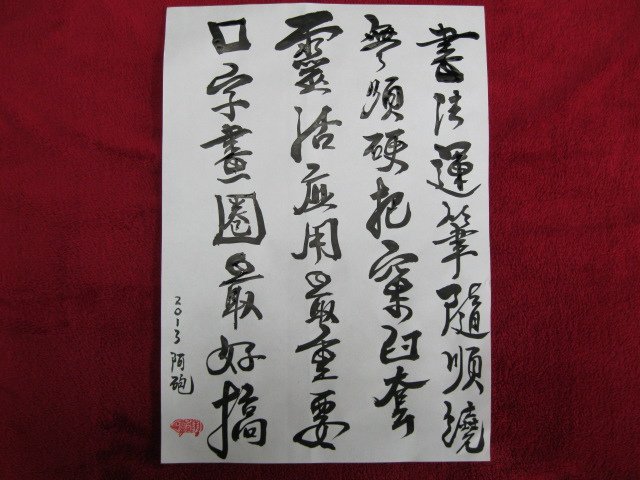 書法運筆隨順繞
無須硬把窠臼套
靈活應用最重要
口字畫圈最好搞
2013 阿砲